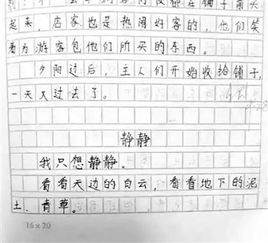 起来，店客也是热闹好客的，他们笑
着为游客包他们所买的东西。
夕阳过后，主人们开始收给铺子，
一天又过去了。
静静
我只想静静．
看看天边的白云，看看地下的泥
土．青草。
16×20